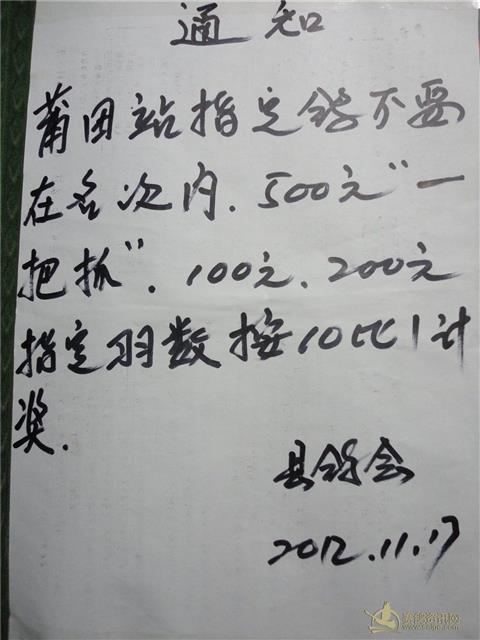 通知
莆田站指定鸽不要
在名次内.500元"一
把抓".100元、200元
指定羽数按10比1计
奖.
县鸽会
2012.11.17